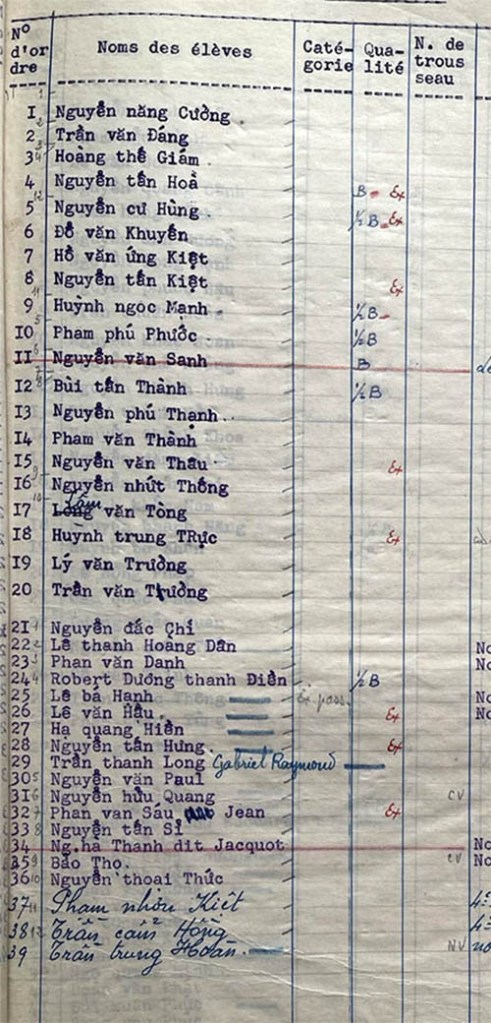 No d'or dre Noms des élèves Caté- gorie Qua- lité N. de trous seau
I Nguyễn năng Cường
2 Trần văn Đáng
3 Hoàng thế Giám
4 Nguyễn tấn Hoà B Ex
5 Nguyễn cư Hùng ½B Ex
6 Đỗ văn Khuyến
7 Hồ văn ứng Kiệt
8 Nguyễn tấn Kiệt Ex
9 Huỳnh ngoc Manh ½B
IO Pham phú Phước ½B
II Nguyễn văn Sanh B
I2 Bùi tấn Thành ½B
I3 Nguyễn phú Thạnh
I4 Pham văn Thành
I5 Nguyễn văn Thâu Ex
I6 Nguyễn nhứt Thống
I7 Lâm văn Tòng
I8 Huỳnh trung TRực Ex
I9 Lý văn Trường
20 Trần văn Tường
2I Nguyễn đắc Chí
22 Lê thanh Hoàng Dân No
23 Phan văn Danh No
24 Robert Dương thanh Điền ½B
25 Lê bá Hanh Ex pass. No
26 Lê văn Hậu Ex No
27 Hạ quang Hiền
28 Nguyễn tấn Hưng Ex
29 Trần thanh Long Gabriel Raymond
30 Nguyễn văn Paul
3I Nguyễn hữu Quang CV
32 Phan van Sáu Jean Ex
33 Nguyễn tấn Sĩ
34 Ng.hà Thanh dit Jacquot No
35 Bảo Tho. CV No
36 Nguyễn thoai Thúc
37 Pham nhơn Kiêt
38 Trần cẩm Hồng
39 Trần trung Hoàn NV no